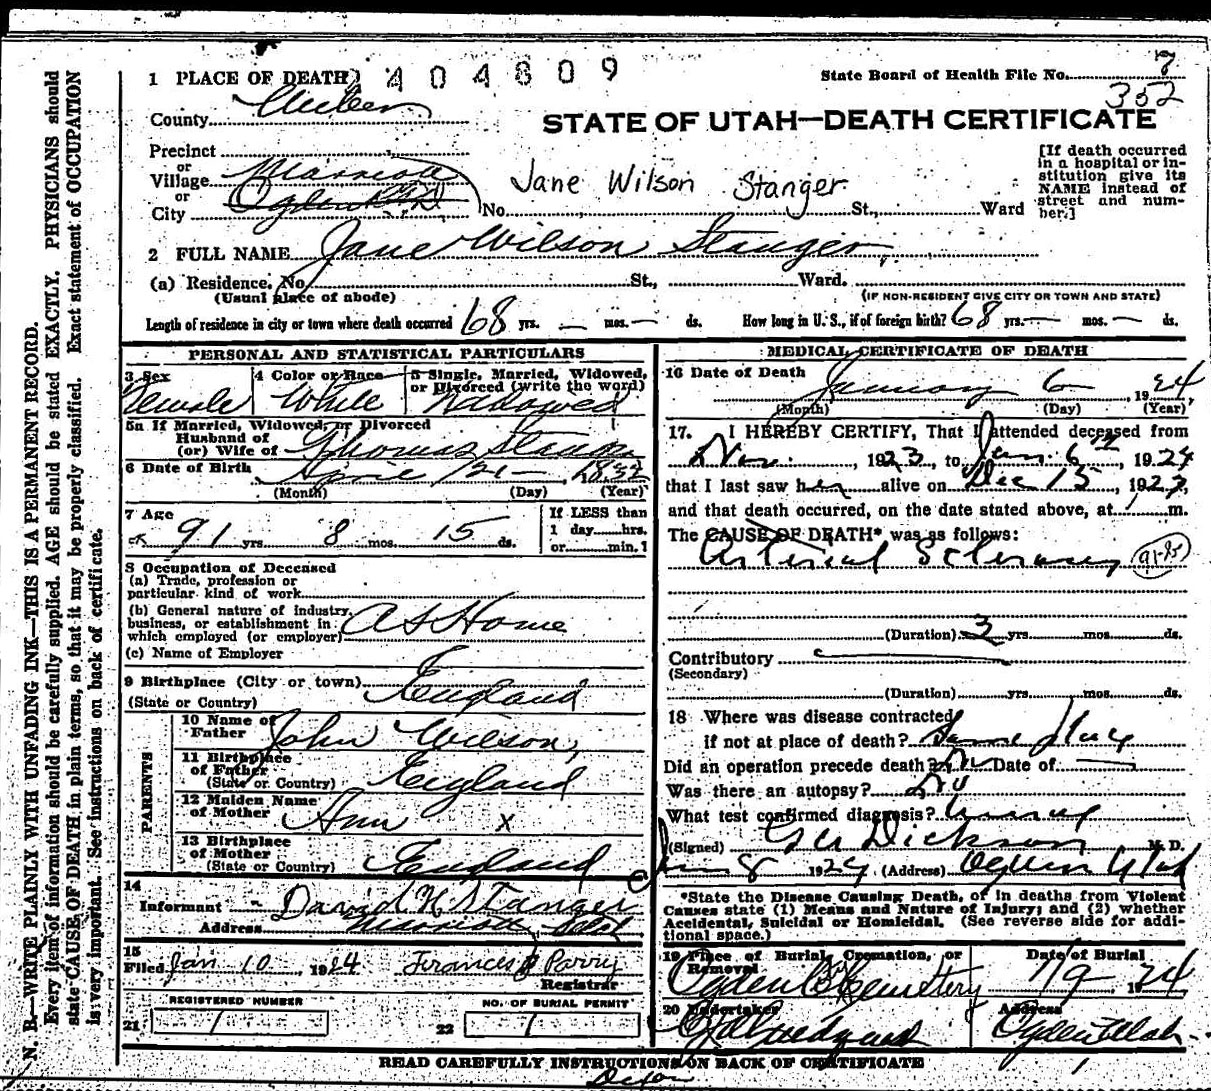 1 PLACE OF DEATH 2404809
State Board of Health File No. 7
352
County Weber
STATE OF UTAH—DEATH CERTIFICATE
Precinct
or
Village Marriott
or
City Ogden
No. St., Ward
Jane Wilson Stanger
[If death occurred
in a hospital or in-
stitution give its
NAME instead of
street and num-
ber.]
2 FULL NAME Jane Wilson Stanger
(a) Residence. No. St., Ward.
(Usual place of abode)
(IF NON-RESIDENT GIVE CITY OR TOWN AND STATE)
Length of residence in city or town where death occurred 68 yrs. — mos. — ds. How long in U. S., if of foreign birth? 68 yrs. — mos. — ds.
PERSONAL AND STATISTICAL PARTICULARS
3 Sex
Female
4 Color or Race
White
5 Single, Married, Widowed,
or Divorced (write the word)
Widowed
5a If Married, Widowed, or Divorced
Husband of
(or) Wife of Thomas Stanger
6 Date of Birth April 21 — 1832
(Month) (Day) (Year)
7 Age
91 yrs. 8 mos. 15 ds.
If LESS than
1 day hrs.
or min.?
8 Occupation of Deceased
(a) Trade, profession or
particular kind of work
(b) General nature of industry,
business, or establishment in
which employed (or employer) At Home
(c) Name of Employer
9 Birthplace (City or town)
(State or Country) England
PARENTS
10 Name of
Father John Wilson
11 Birthplace
of Father
(State or Country) England
12 Maiden Name
of Mother Ann X
13 Birthplace
of Mother
(State or Country) England
14
Informant David H Stanger
Address Marriott Utah
15
Filed Jan 10, 1924 Frances Parry
Registrar
REGISTERED NUMBER
21 1
NO. OF BURIAL PERMIT
22 1
MEDICAL CERTIFICATE OF DEATH
16 Date of Death
January 6 1924
(Month) (Day) (Year)
17. I HEREBY CERTIFY, That I attended deceased from
Nov. , 1923, to Jan. 6th, 1924
that I last saw her alive on Dec 15, 1923,
and that death occurred, on the date stated above, at m.
The CAUSE OF DEATH* was as follows:
Arterial Sclerosis 91-b
(Duration) 3 yrs. mos. ds.
Contributory
(Secondary)
(Duration) yrs. mos. ds.
18 Where was disease contracted
if not at place of death? Same place
Did an operation precede death? No Date of —
Was there an autopsy? No
What test confirmed diagnosis?
(Signed) Dickson M. D.
Jan 8 1924 (Address) Ogden Utah
*State the Disease Causing Death, or in deaths from Violent
Causes state (1) Means and Nature of Injury; and (2) whether
Accidental, Suicidal or Homicidal. (See reverse side for addi-
tional space.)
19 Place of Burial, Cremation, or
Removal
Ogden Cemetery
Date of Burial
1/9 1924
20 Undertaker
Address
Ogden Utah.
READ CAREFULLY INSTRUCTIONS ON BACK OF CERTIFICATE
N. B.—WRITE PLAINLY WITH UNFADING INK—THIS IS A PERMANENT RECORD.
Every item of information should be carefully supplied. AGE should be stated EXACTLY. PHYSICIANS should
state CAUSE OF DEATH in plain terms, so that it may be properly classified. Exact statement of OCCUPATION
is very important. See instructions on back of certificate.